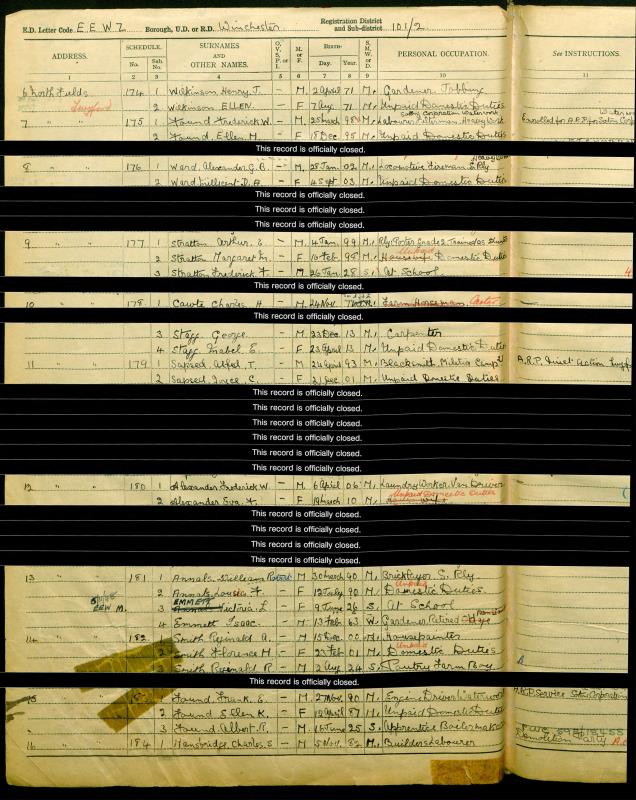 E.D. Letter Code EEWZ Borough, U.D. or R.D. Winchester Registration District and Sub-district 101/2
ADDRESS. SCHEDULE. SURNAMES AND OTHER NAMES. O, V, S, P, or I M. or F. BIRTH— S, M, W. or D. PERSONAL OCCUPATION. See INSTRUCTIONS.
No. Sub. No. Day. Year.
1 2 3 4 5 6 7 8 9 10 11
6 North Fields 174 1 Wilkinson Henry J. – M. 2 April 71 M. Gardener Jobbing
Twyford 2 Wilkinson ELLEN. F 7 Aug 71 M. Unpaid Domestic Duties
7 " " 175 1 Found Frederick W. – M. 25 March 98 M. Labourer Heavy Work Enrolled for A.R.P. for
2 Found, Ellen M. F 18 Dec 95 M. Unpaid Domestic Duties
This record is officially closed.
8 " " 176 1 Ward Alexander G.B. – M. 28 Jan 02 M. Locomotive Fireman S. Rly
2 Ward F 4 Sept 03 M. Unpaid Domestic Duties
This record is officially closed.
This record is officially closed.
This record is officially closed.
9 " " 177 1 Stratton Arthur E – M 4 Jan. 99 M. Rly. Porter Grade 2
2 Stratton Margaret – F 10 Feb 98 M. Domestic Duties
3 Stratton Frederick F. – M 26 Jan 28 S. At School
This record is officially closed.
10 " " 178 1 Cawte Charles H – M 24 Nov. M. Farm Horseman Carter
This record is officially closed.
3 Stagg George – M 23 Dec 13 M. Carpenter
4 Stagg Mabel E. – F 23 April 13 M. Unpaid Domestic Duties
11 " " 179 1 Sapsed Alfred T – M 24 April 93 M. Blacksmith Militia Camp A.R.P. Direct Action
2 Sapsed Joyce C. – F 21 Dec 01 M. Unpaid Domestic Duties
This record is officially closed.
This record is officially closed.
This record is officially closed.
This record is officially closed.
This record is officially closed.
This record is officially closed.
12 " " 180 1 Alexander Frederick W. – M. 6 April 06 M. Laundry Worker Van Driver
Unpaid Domestic Duties
2 Alexander Eva F – F 19 March 10 M.
This record is officially closed.
This record is officially closed.
This record is officially closed.
This record is officially closed.
13 " " 181 1 Annals William – M 30 March 90 M. Bricklayer S. Rly
Unpaid
2 Annals Louisa F – F 12 July 90 M. Domestic Duties
EEW M. EMMETT
3 Annals Victoria L – F 9 June 26 S. At School
4 Emmett Isaac – M 13 Feb 63 W. Gardener Retired
14 " " 182 1 South Reginald A. – M 15 Dec 00 M. Housepainter
Unpaid
2 South Florence M – F 23 Feb 01 M. Domestic Duties
South Reginald R – M 2 Aug 24 S. Farm Boy
This record is officially closed.
15 " 183 1 Found, Frank. E. – M. 27 Nov. 90 M. Engine Driver Waterworks A.R.P. Service Corporation
2 Found Ellen K. – F 12 April 87 M. Unpaid Domestic Duties
" 3 Found Albert R. – M. 16 June 25 S Apprentice Boilermaker
Demolition Party
16 " " 184 1 Hansbridge, Charles. S – M 5 Nov. 82 M. Builders Labourer